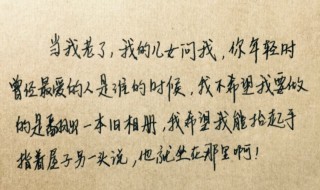 当我老了，我的儿女问我，你年轻时
曾经最爱的人是谁的时候，我不希望我要做
的是翻出一本旧相册，我希望我能抬起手
指着屋子另一头说，他就坐在那里啊！